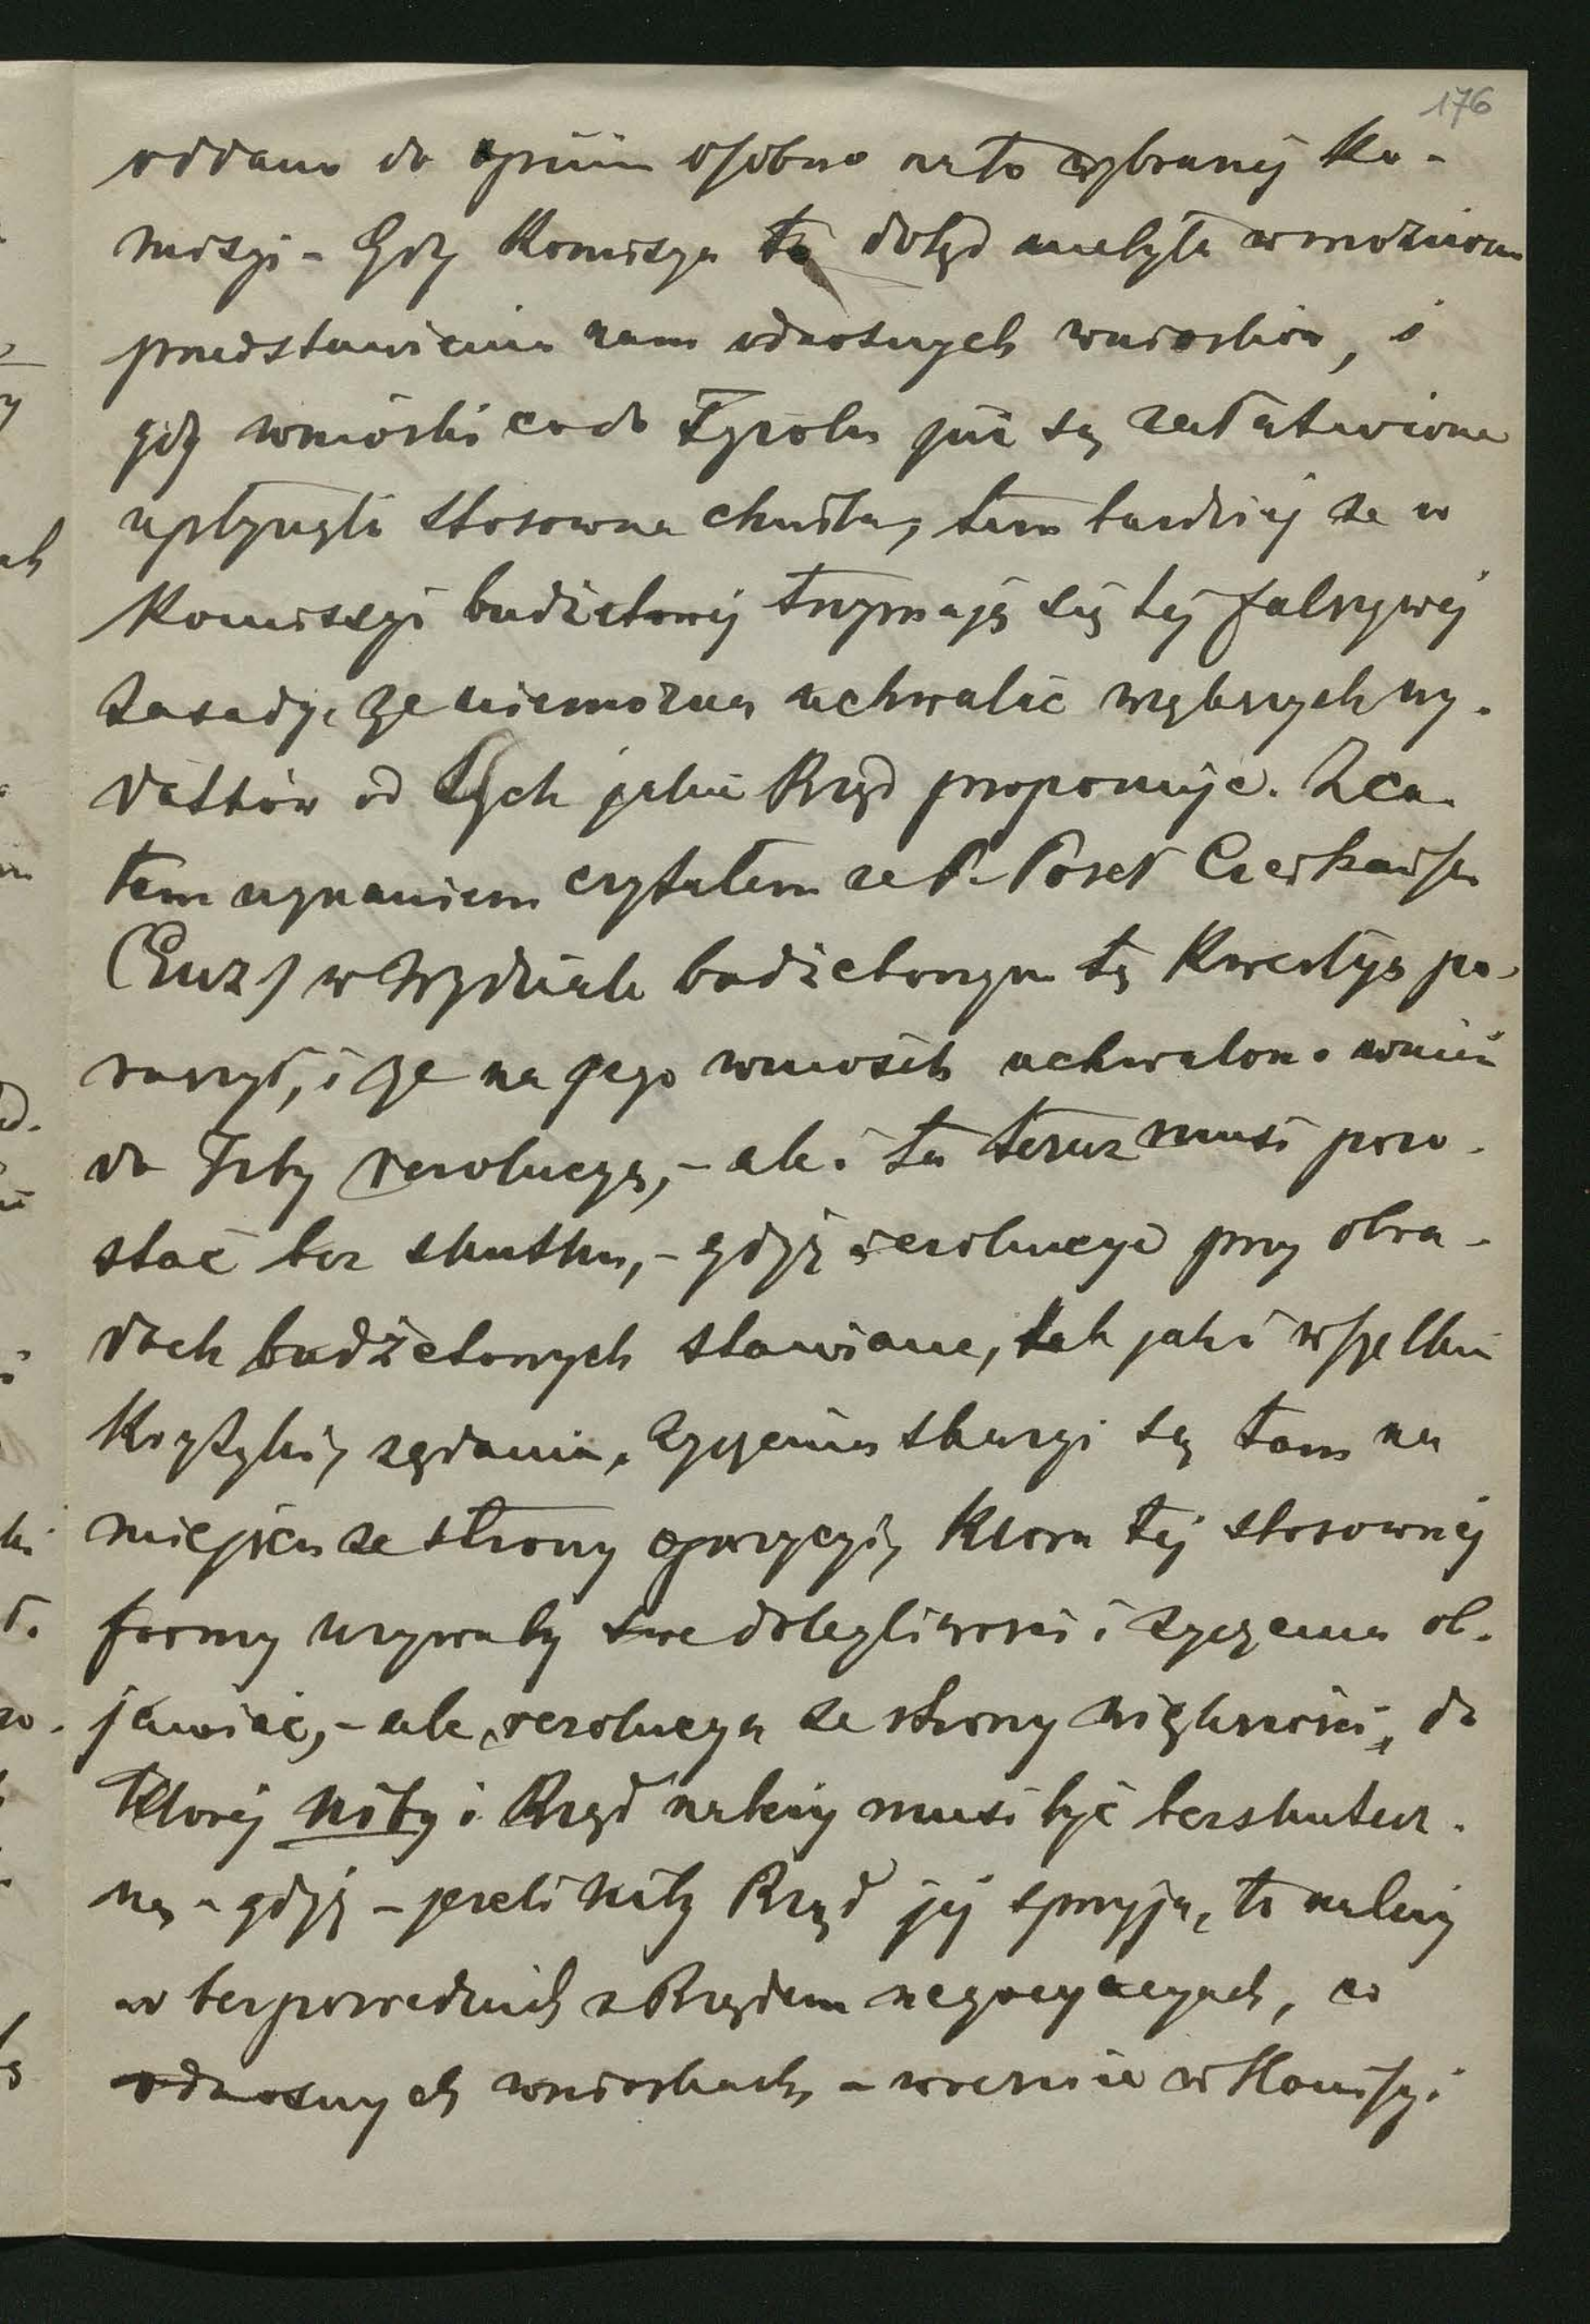 176
oddano do opinii osobno na to wybranej ko-
misyi - Gdy Komisya ta dotąd nie była w możności
przedstawienia nam odnośnych wniosków, i
gdy wnioski co do Tyrolu już są załatwione
upłynęła stosowna chwila, tem bardziej ze w
Komissyi budżetowej trzymają się tej fałszywej
zasady, ze niemożna uchwalić większych wy-
datków od tych jakie Rząd proponuje. Z ca-
łem uznaniem czytałem ze P. Poseł Czerkawski
(Euz) w Wydziale budżetowym tę kwestyę po-
ruszył, i ze na jego wniosek uchwalono wnieść
do Izby rezolucyą, - ale i ta teraz musi pozo-
stać bez skutku, - gdyż rezolucye przy obra-
dach budżetowych stawiane, tak jak i wszelkie
krytyki, ządania, zyczenia skargi są tam na
miejscu ze strony opozycyi, ktora tej stosownej
formy uzywa by swe dolegliwości i zyczenia ob-
jawiac, - ale rezolucya ze strony większości, do
ktorej niby i Rząd nalezy musi być bezskutecz-
ną - gdyż - jezeli niby Rząd jej sprzyja, to nalezy
w bezpośrednich z Rządem negocyacyach, co
odnosnych wnioskach - wczesnie w Komisyi